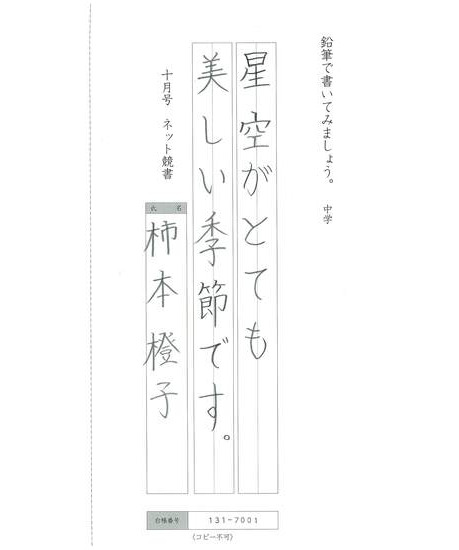 鉛筆で書いてみましょう。 中学
星空がとても
美しい季節です。
十月号 ネット競書
氏名
柿本橙子
台帳番号 131-7001
(コピー不可)